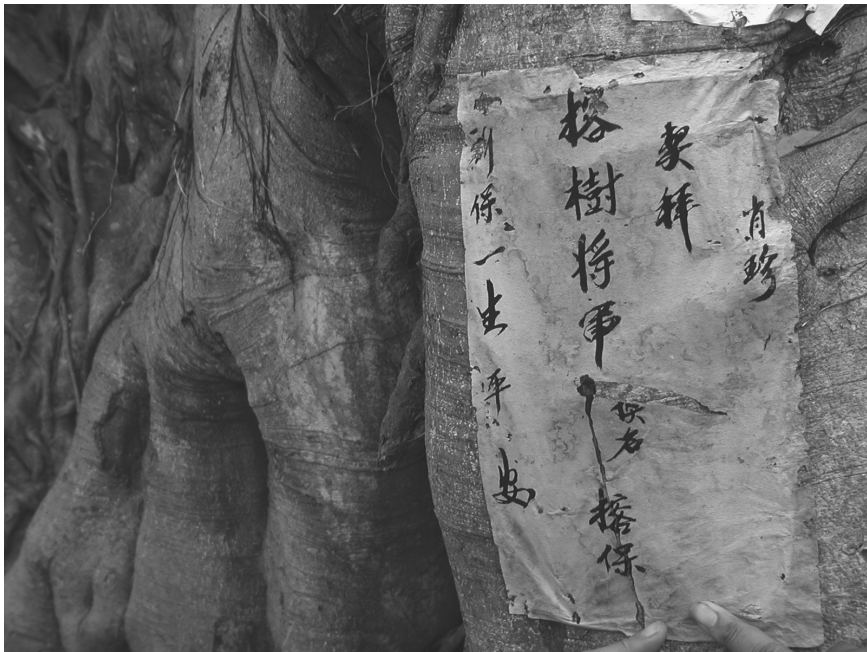 肖珍
契拜
榕樹将軍
名
榕保
保一生平安